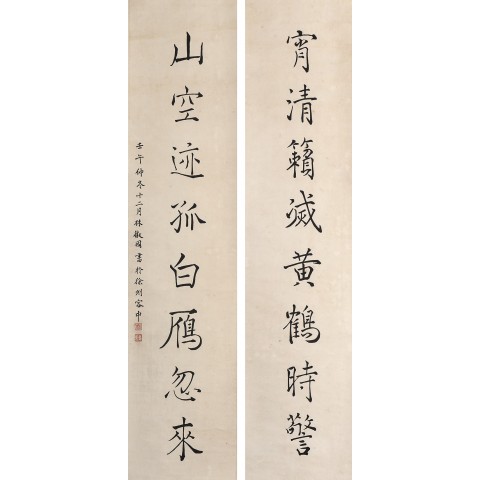 宵清籟滅黄鶴時警
山空迹孤白鴈忽來
壬午仲冬十二月林散周書於徐州客中